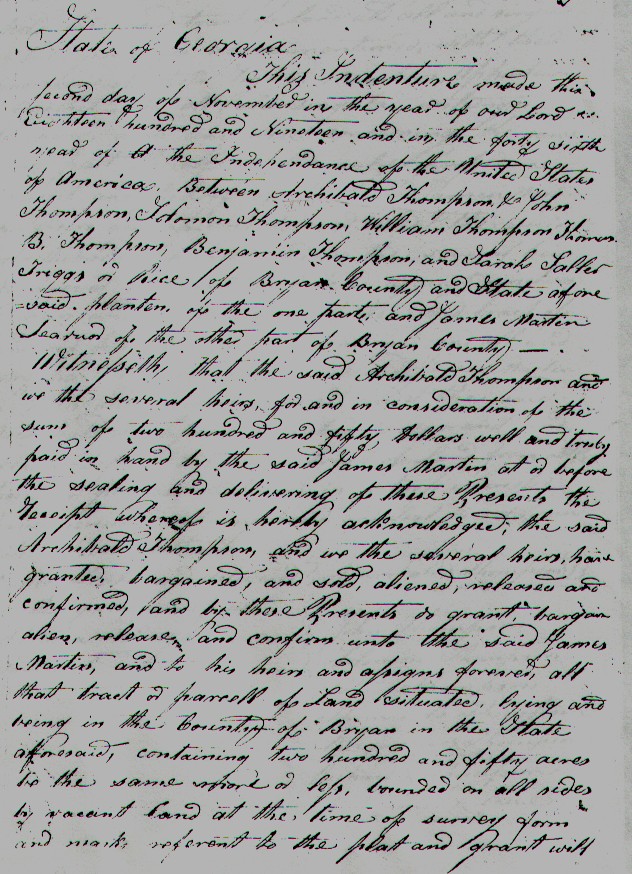 State of Georgia
This Indenture made this
second day of November in the year of our Lord
Eighteen hundred and Nineteen and in the forty sixth
year of the Independance of the United States
of America. Between Archibald Thompson, & John
Thompson, Solomon Thompson, William Thompson Thomas
B. Thompson, Benjamin Thompson, and Sarah Salter
Triggs or Rice of Bryan County and State afore
said planters of the one part, and James Martin
of the other part of Bryan County —
Witnesseth, that the said Archibald Thompson and
we the several heirs, for and in consideration of the
sum of two hundred and fifty dollars well and truly
paid in hand by the said James Martin at or before
the sealing and delivering of these Presents the
receipt whereof is hereby acknowledged; the said
Archibald Thompson, and we the several heirs, have
granted, bargained, and sold, aliened, released and
confirmed, and by these Presents do grant, bargain
alien, release, and confirm unto the said James
Martin, and to his heirs and assigns forever, all
that tract or parcell of Land situated, lying and
being in the County of Bryan in the State
aforesaid, containing two hundred and fifty acres
be the same more or less, bounded on all sides
by vacant land at the time of survey form
and marks referent to the plat and grant will